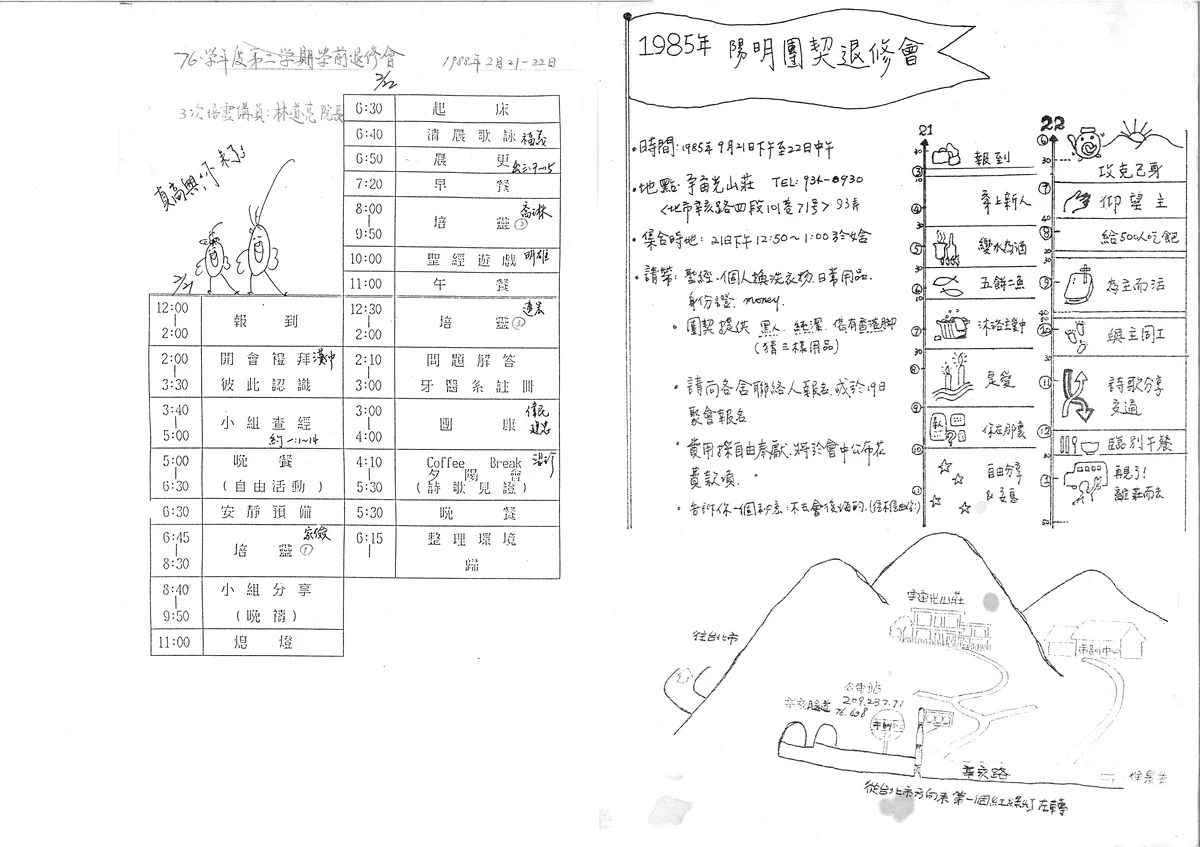 76學年度第二學期學前退修會
1988年2月21-22日
3次培靈講員:林道亮院長
真高興,你來了!
2/21
12:00 | 2:00 報到
2:00 | 3:30 開會禮拜 漢中
彼此認識
3:40 | 5:00 小組查經
約一:1~14
5:00 | 6:30 晚餐
(自由活動)
6:30 安靜預備
6:45 | 8:30 培靈① 家儉
8:40 | 9:50 小組分享
(晚禱)
11:00 熄燈
2/22
6:30 起床
6:40 清晨歌詠
6:50 晨更
7:20 早餐
8:00 | 9:50 培靈②
10:00 聖經遊戲 明雄
11:00 午餐
12:30 | 2:00 培靈③
2:10 | 3:00 問題解答
牙醫系註冊
3:00 | 4:00 團康
4:10 | 5:30 Coffee Break
夕陽會
(詩歌見證)
5:30 晚餐
6:15 | 整理環境
歸
1985年 陽明團契退修會
•時間:1985年9月21日下午至22日中午
•地點:宇宙光山莊 TEL:934-0930
<北市辛亥路四段101巷71號> 93弄
•集合時地:21日下午12:50~1:00於女舍
•請帶:聖經.個人換洗衣物.日常用品.
身份證.money.
•團契提供 黑人.純潔.
(猜三樣用品)
•請向各舍聯絡人報名或於19日
聚會報名
•費用採自由奉獻.將於會中公布花
費款項.
•告訴你一個秘密:不去會後悔的.
21
報到
牽上新人
變水為酒
五餅二魚
沐浴主愛中
是愛
你在那裏
自由分享
22
攻克己身
仰望主
給500人吃飽
為主而活
與主同工
詩歌分享
交通
臨別午餐
再見了!
離莊而去
宇宙光山莊
從台北市
公車站
209.237.71
辛亥隧道
辛亥路
從台北市方向來第一個紅綠燈左轉